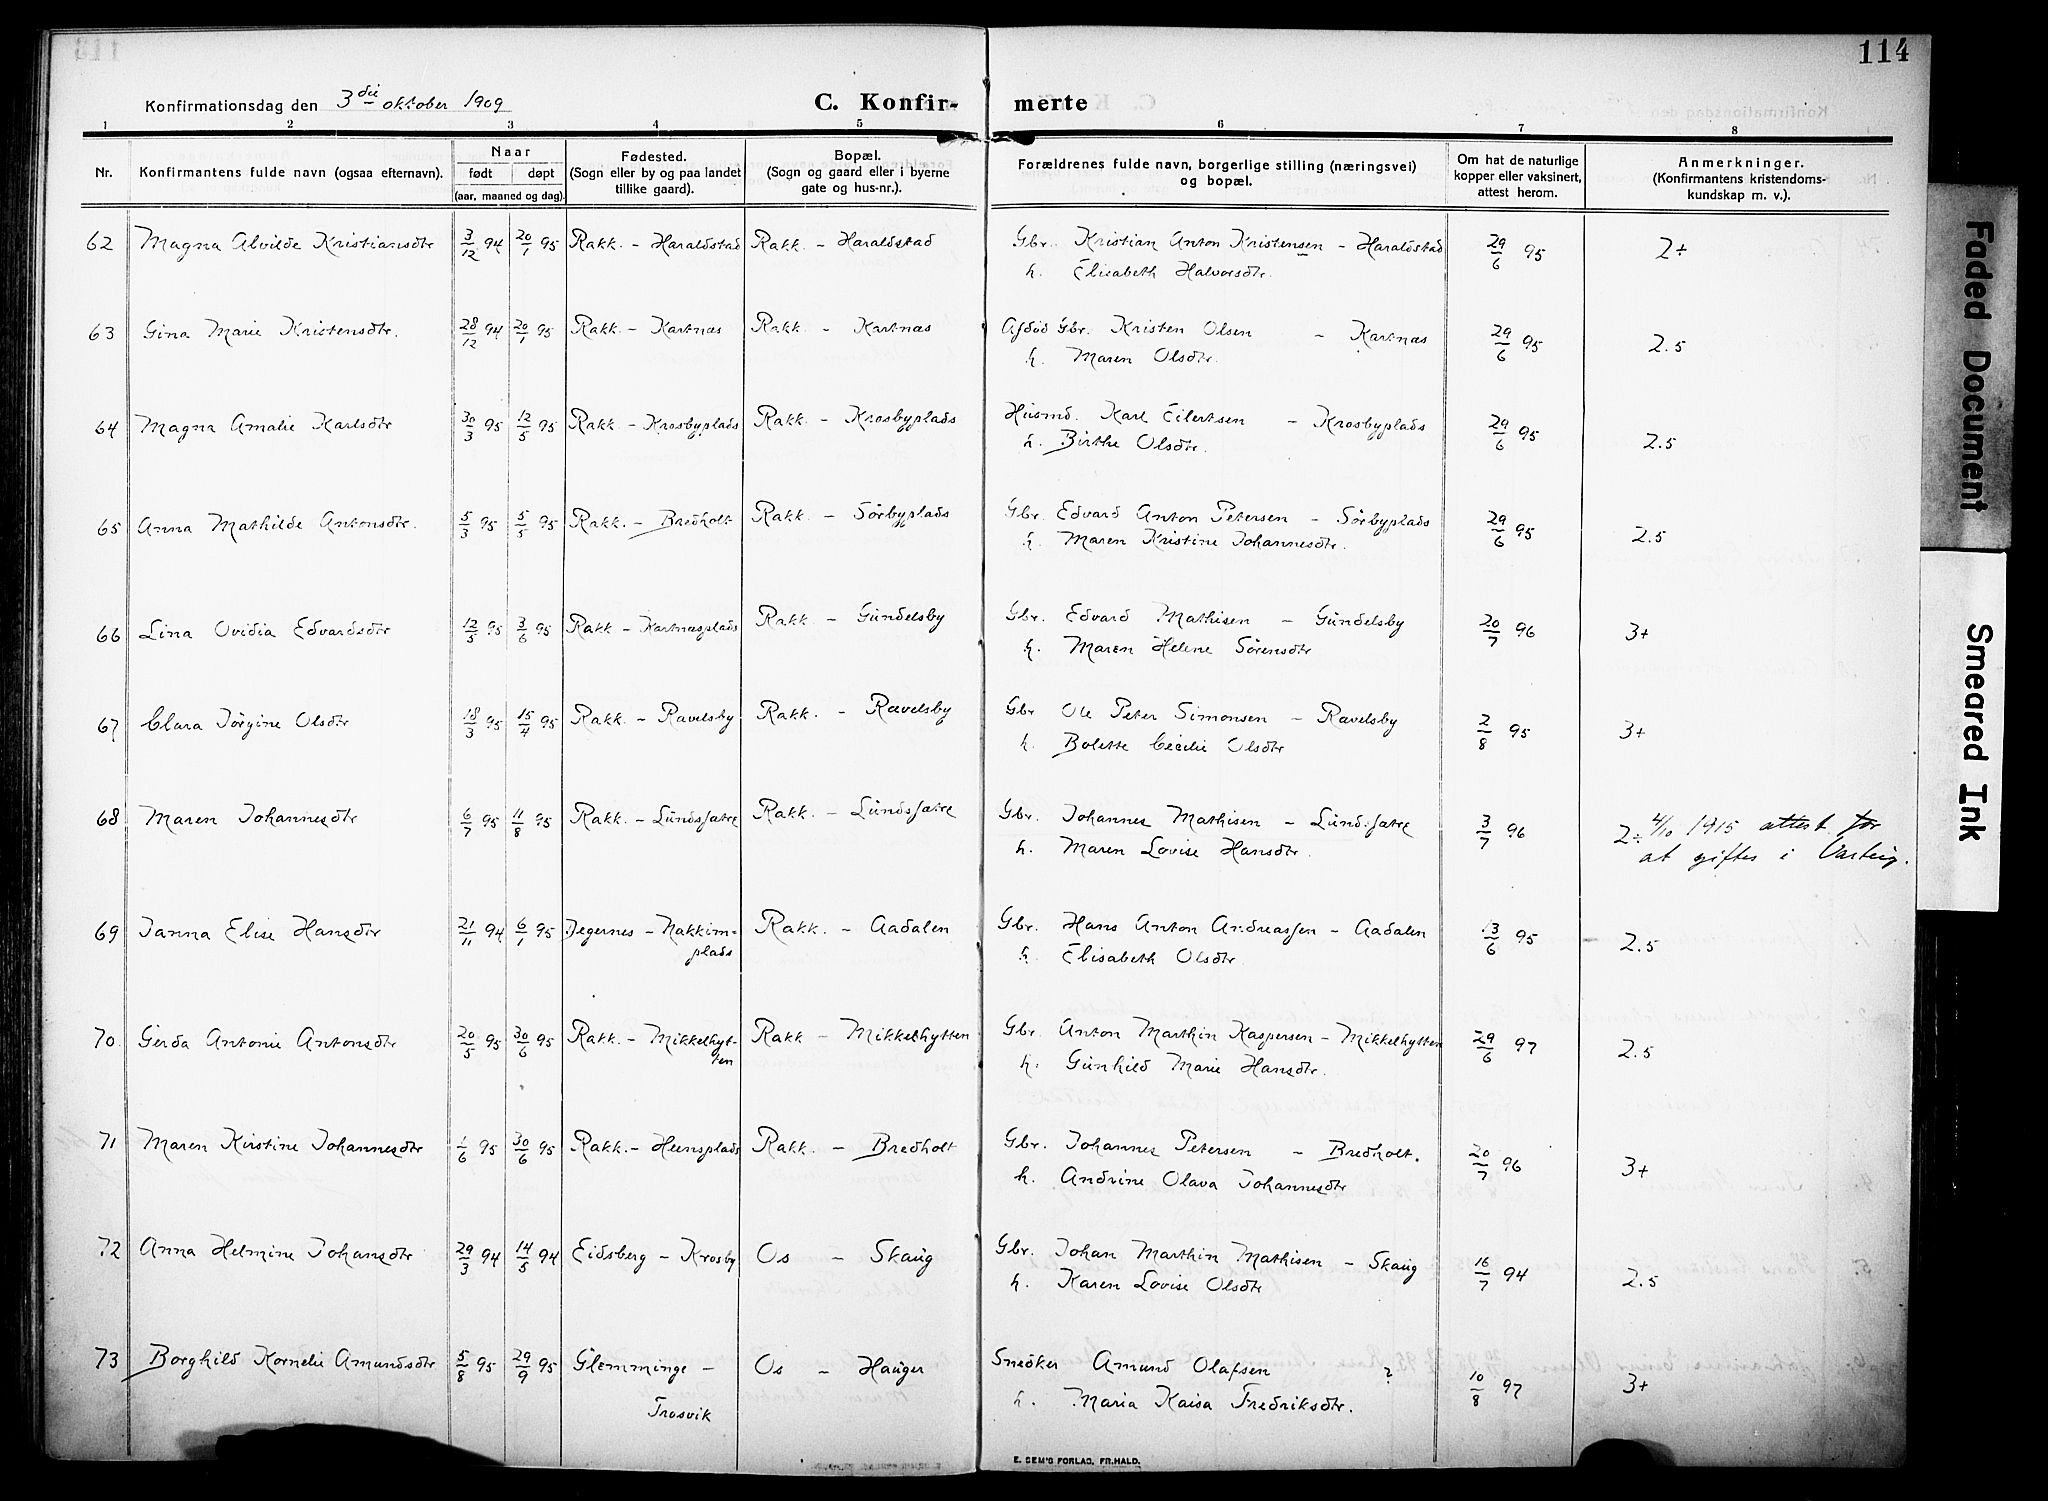 114
Konfirmationsdag den 3die oktober 1909 C. Konfir- merte
1 2 3 4 5 6 7 8
Nr. Konfirmantens fulde navn (ogsaa efternavn). Naar født døpt (aar, maaned og dag). Fødested. (Sogn eller by og paa landet tillike gaard). Bopæl. (Sogn og gaard eller i byerne gate og hus-nr.). Forældrenes fulde navn, borgerlige stilling (næringsvei) og bopæl. Om hat de naturlige kopper eller vaksinert, attest herom. Anmerkninger. (Konfirmantens kristendoms- kundskap m. v.).
62 Magna Alvilde Kristiansdtr 3/12 94 20/1 95 Rakk. - Haraldstad Rakk. - Haraldstad Gbr. Kristian Anton Kristensen - Haraldstad 29/6 95 2÷
h. Elisabeth Halvorsdtr.
63 Gina Marie Kristensdtr. 28/12 94 20/1 95 Rakk. - Kartnæs Rakk. - Kartnæs Afdød Gbr. Kristen Olsen - Kartnæs 29/6 95 2.5
h. Maren Olsdtr.
64 Magna Amalie Karlsdtr 30/3 95 12/5 95 Rakk. - Krosbyplads Rakk. - Krosbyplads Husmd. Karl Eilertsen - Krosbyplads 29/6 95 2.5
h. Birthe Olsdtr.
65 Anna Mathilde Antonsdtr. 5/3 95 5/5 95 Rakk. - Bredholt Rakk. - Sörbyplads Gbr. Edvard Anton Petersen - Sörbyplads 29/6 95 2.5
h. Maren Kristine Johannesdtr.
66 Lina Ovidia Edvardsdtr 12/5 95 3/6 95 Rakk - Kartnæsplads Rakk. - Gundelsby Gbr. Edvard Mathisen - Gundelsby 20/7 96 3+
h. Maren Helene Sörensdtr
67 Clara Jörgine Olsdtr 18/3 95 15/4 95 Rakk. - Ravelsby Rakk. - Ravelsby Gbr Ole Peter Simonsen - Ravelsby 2/8 95 3+
h. Bolette Cecilie Olsdtr
68 Maren Johannesdtr 6/7 95 11/8 95 Rakk. - Lundssætre Rakk. - Lundssætre Gbr. Johannes Mathisen - Lundssætre 3/7 96 2÷ 4/10 1915 attest for
h. Maren Lovise Hansdtr. at giftes i Varteig.
69 Janna Elise Hansdtr 21/11 94 6/1 95 Degernes - Nakkim- Rakk. - Aadalen Gbr. Hans Anton Andreassen - Aadalen 13/6 95 2.5
plads h. Elisabeth Olsdtr.
70. Gerda Antonie Antonsdtr 20/5 95 30/6 95 Rakk. - Mikkelhyt- Rakk - Mikkelhytten Gbr. Anton Marthin Kaspersen - Mikkelhytten 29/6 97 2.5
ten h. Gunhild Marie Hansdtr.
71 Maren Kirstine Johannesdtr 1/6 95 30/6 95 Rakk. - Heensplads Rakk. - Bredholt Gbr. Johannes Petersen - Bredholt. 20/7 96 3+
h. Andrine Olava Johannesdtr
72 Anna Helmine Johansdtr 29/3 94 14/5 94 Eidsberg - Krosby Os - Skaug Gbr. Johan Marthin Mathisen - Skaug 16/7 94 2.5
h. Karen Lovise Olsdtr
73 Borghild Kornelie Amundsdtr 5/8 95 29/9 95 Glemminge - Os - Hauger Snedker Amund Olafsen ? 10/8 97 3+
Trosvik h. Maria Kaisa Fredriksdtr.
E. SEM'S FORLAG, FR.HALD.
Faded Document
Smeared Ink